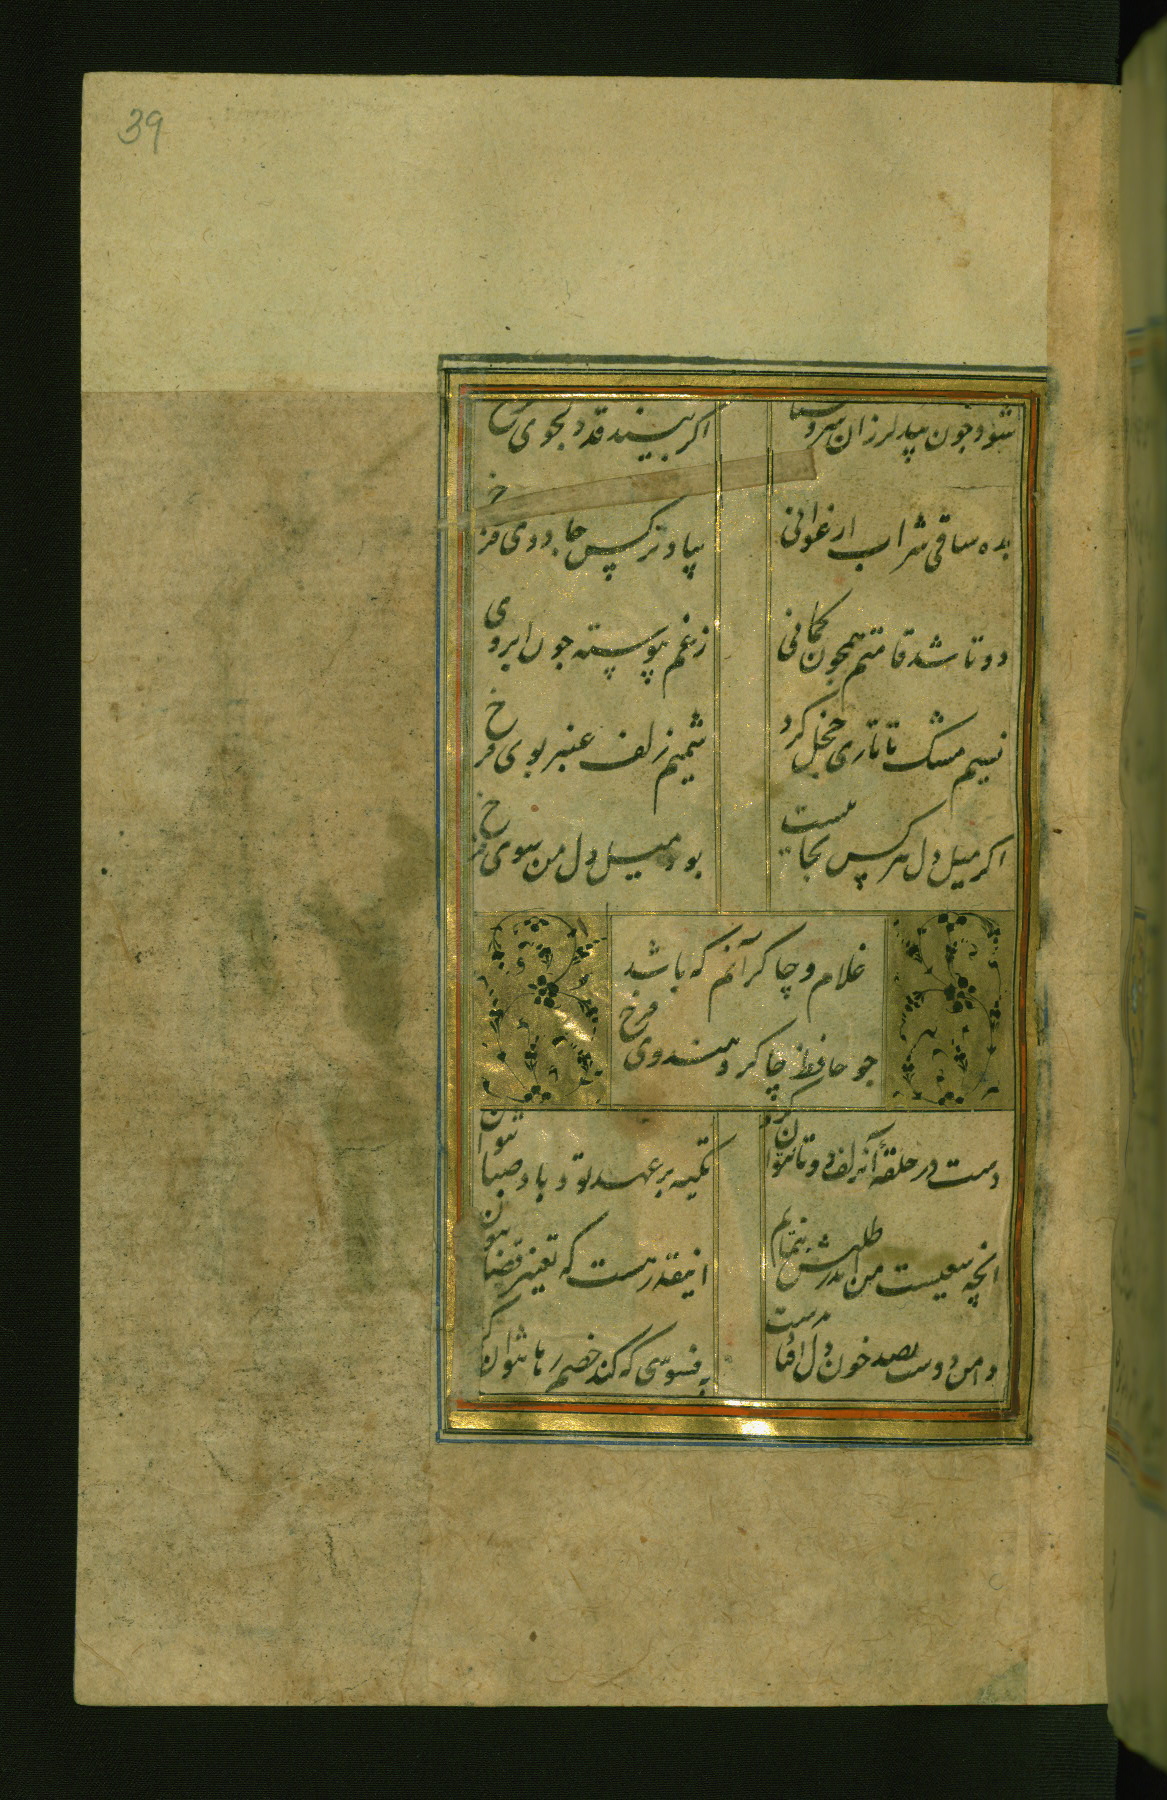 39
شود چون بید لرزان سرو بستان اگر بیند قد دلجوی فرخ
بده ساقی شراب ارغوانی بیاد نرکس جادوی فرخ
دوتا شد قامتم همچون کمانی زغم پیوسته چون ابروی فرخ
نسیم مشک تاتاری خجل کرد شمیم زلف عنبر بوی فرخ
اکر میل دل هر کس بجاییست بود میل دل من سوی فرخ
غلام و چاکر آنم که باشد
چو حافظ چاکر و هندوی فرخ
دست در حلقۀ آن زلف دوتا نتوان کرد تکیه بر عهد تو و باد صبا نتوان
انچه سعیست من اندر طلبش بنمایم اینقدر هست که تغییر قضا نتوان
دامن دوست بصد خون دل افتاد بدست به فسوسی که کند خصم رها نتوان کرد